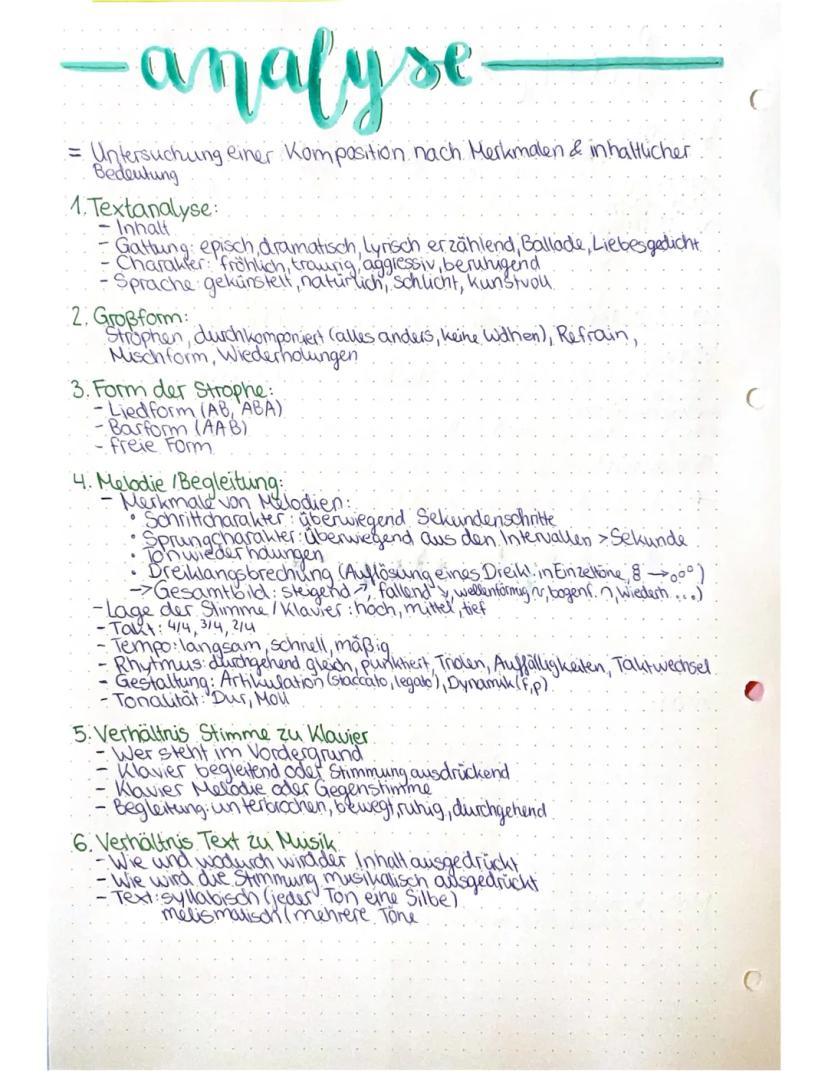 analyse
= Untersuchung einer Komposition nach Merkmalen & inhaltlicher
Bedeutung
1. Textanalyse:
- Inhalt
- Gattung: episch, dramatisch, lyrisch erzählend, Ballade, Liebesgedicht
- Charakter: fröhlich, traurig, aggressiv, beruhigend
- Sprache: gekünstelt, natürlich, schlicht, kunstvoll
2. Großform:
Strophen, durchkomponiert (alles anders, keine Wdhen), Refrain,
Mischform, Wiederholungen
3. Form der Strophe:
- Liedform (AB, ABA)
- Barform (AAB)
- freie Form
4. Melodie / Begleitung:
- Merkmale von Melodien:
• Schrittcharakter: überwiegend Sekundenschritte
• Sprungcharakter: überwiegend aus den Intervallen > Sekunde
• Tonwiederholungen
• Dreiklangsbrechung (Auflösung eines Dreikl. in Einzeltöne, 8 → ooo)
-> Gesamtbild: steigend ↗, fallend ↘, wellenförmig ~, bogenf. ∩, Wiederh ...)
- Lage der Stimme / Klavier: hoch, mittel, tief
- Takt: 4/4, 3/4, 2/4
- Tempo: langsam, schnell, mäßig
- Rhytmus: durchgehend gleich, punktiert, Triolen, Auffälligkeiten, Taktwechsel
- Gestaltung: Artikulation (staccato, legato), Dynamik (f, p)
- Tonalität: Dur, Moll
5. Verhältnis Stimme zu Klavier
- Wer steht im Vordergrund
- Klavier begleitend oder Stimmung ausdrückend
- Klavier Melodie oder Gegenstimme
- Begleitung: unterbrochen, bewegt, ruhig, durchgehend
6. Verhältnis Text zu Musik
- Wie und wodurch wird der Inhalt ausgedrückt
- Wie wird die Stimmung musikalisch ausgedrückt
- Text: syllabisch (jeder Ton eine Silbe)
melismatisch (mehrere Töne